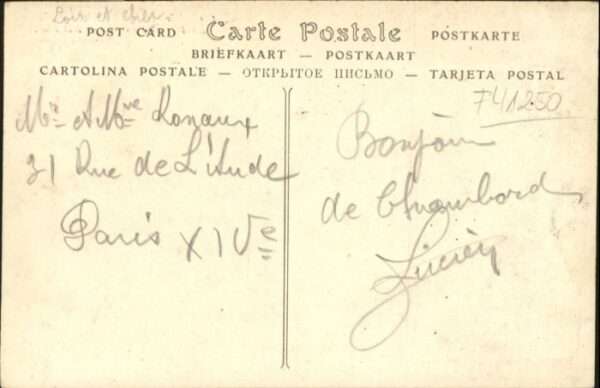 Loir et cher.
POST CARD Carte Postale POSTKARTE
BRIEFKAART — POSTKAART
CARTOLINA POSTALE — ОТКРЫТОЕ ПИСЬМО — TARJETA POSTAL
741250
Mr et Mme Ronaux
31 Rue de L'Aude
Paris XIVe
Bonjour
de Chambord
Lucien